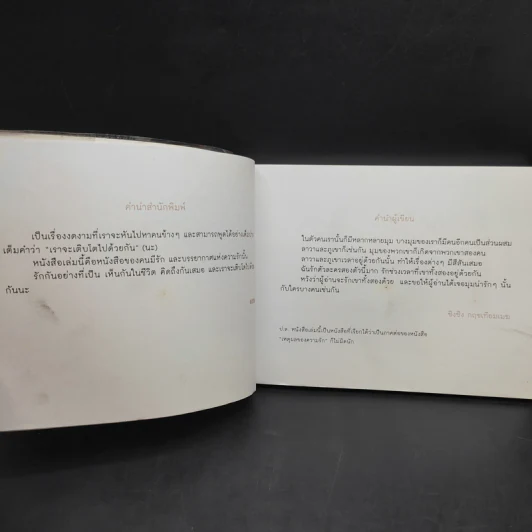 คำนำสำนักพิมพ์
เป็นเรื่องงดงามที่เราจะหันไปหาคนข้างๆ และสามารถพูดได้อย่างเต็มปาก
เต็มคำว่า "เราจะเติบโตไปด้วยกัน" (นะ)
หนังสือเล่มนี้คือหนังสือของคนมีรัก และบรรยากาศแห่งความรักนั้น
รักกันอย่างที่เป็น เห็นกันในชีวิต คิดถึงกันเสมอ และเราจะเติบโตไปด้วย
กันนะ
คำนำผู้เขียน
ในตัวคนเรานั้นก็มีหลากหลายมุม บางมุมของเราก็มีคนอีกคนเป็นส่วนผสม
ลาวาและภูเขาก็เช่นกัน มุมของพวกเขาก็เกิดจากพวกเขาสองคน
ลาวาและภูเขาเวลาอยู่ด้วยกันนั้น ทำให้เรื่องต่างๆ มีสีสันเสมอ
ฉันรักตัวละครสองตัวนี้มาก รักช่วงเวลาที่เขาทั้งสองอยู่ด้วยกัน
หวังว่าผู้อ่านจะรักเขาทั้งสองด้วย และขอให้ผู้อ่านได้เจอมุมน่ารักๆ นั้น
กับใครบางคนเช่นกัน
ป.ล. หนังสือเล่มนี้เป็นหนังสือที่เรียกได้ว่าเป็นภาคต่อของหนังสือ
"เหตุผลของความรัก" ก็ไม่ผิดนัก